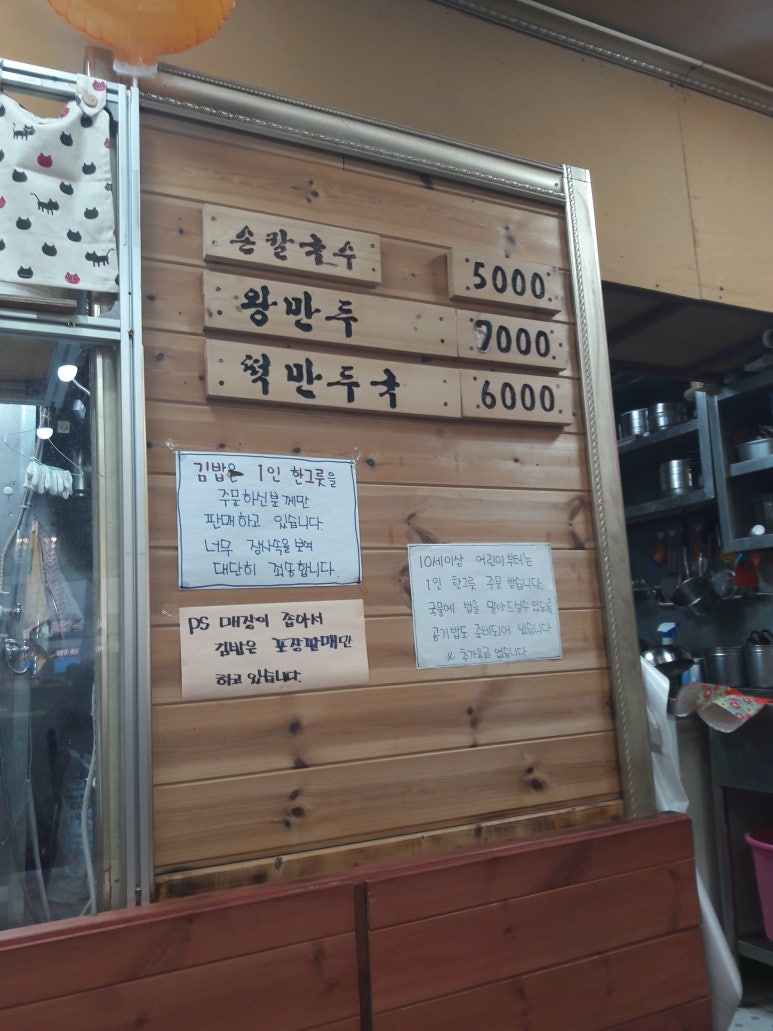 손칼국수 5000
왕만두 7000
떡만두국 6000
김밥은 1인 한그릇을
주문하신분께만
판매하고 있습니다.
너무 장사속을 보여
대단히 죄송합니다.
PS 매장이 좁아서
김밥은 포장판매만
하고 있습니다.
10세이상 어린이부터는
1인 한그릇 주문 받습니다.
국물에 밥을 말아드실수있도록
공기밥도 준비되어 있습니다
※ 추가요금 없습니다